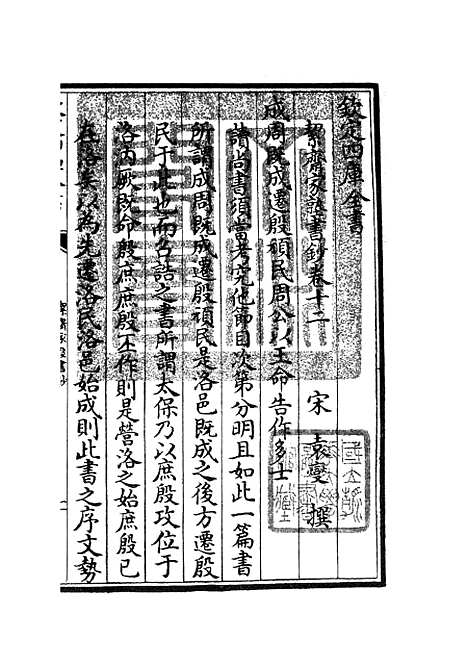 欽定四庫全書
絜齋家塾書鈔卷十二
宋 袁燮 撰
成周既成遷殷頑民周公以王命告作多士
讀尚書須當考究他節目次第分明且如此一篇書
所謂成周既成遷殷頑民是洛邑既成之後方遷殷
民于此也而召誥之書所謂太保乃以庶殷攻位于
洛汭厥既命殷庶庶殷丕作則是營洛之始庶殷已
在洛矣以為先遷洛民洛邑始成則此書之序文勢